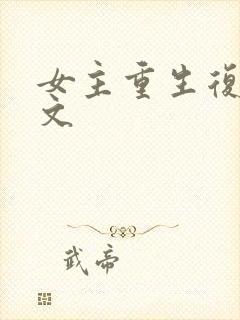 女主重生復
文
武帝